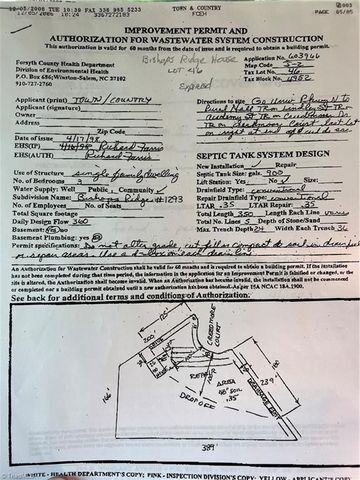 12-05-2006 TUE 10:39 FAX 336 985 5233 TOWN & COUNTRY
12/05/2006 10:24 3367272183 FCEH PAGE 05/05
IMPROVEMENT PERMIT AND
AUTHORIZATION FOR WASTEWATER SYSTEM CONSTRUCTION
This authorization is valid for 60 months from the date of issue and is required to obtain a building permit.
Forsyth County Health Department
Division of Environmental Health
P.O. Box 686; Winston-Salem, NC 27102
910-727-2760
Bishops Ridge House
LOT 46
Expired
Application No.
Map Code
Tax Lot No. 46
Tax Block No. 4952
Applicant (print) TOWN / COUNTRY
Applicant (signature)
Owner
Address
Zip Code
Date of issue 4/17/98
EHS(IP) 4/16/98 Richard Farris
EHS(AUTH) Richard Farris
Directions to site
SEPTIC TANK SYSTEM DESIGN
Use of Structure single family dwelling
No. of Bedrooms 3
Water Supply: Well Public Community
Subdivision Name Bishops Ridge #1293
No. of Employees No. of Seats
Total Square footage
Daily Design Flow 360
Basement: yes no
Basement Plumbing: yes no
New Installation Repair
Septic Tank Size: gals. 900
Lift Station: Yes No Size:
Drainfield Type: conventional
Repair Drainfield Type: conventional
LTAR .35 LTAR Repair .35
Total Length 350 Length Each Line
Total No. Lines 5 Depth of Stone/Sand
Max. Trench Depth 24 Width Each Trench 36
Permit specifications: Do not alter grade, cut, fill or compact the soil in drainfield
or repair areas. Use a d-box on each drainline.
An Authorization for Wastewater Construction shall be valid for 60 months and is required to obtain a building permit. If the installation
has not been completed during that time period, the information in the application for an Improvement Permit is falsified or changed, or the
site is altered, the Authorization shall become invalid. When an Authorization has become invalid, the installation shall not be commenced
or completed nor a building permit obtained until a new authorization has been obtained. As per 15A NCAC 18A.1900.
See back for additional terms and conditions of Authorization.
CREEDMORE
COURT
200'
REPAIR
AREA
48" SOIL
.35
DROP OFF
239
180
166'
389'
WHITE - HEALTH DEPARTMENT'S COPY; PINK - INSPECTION DIVISION'S COPY; YELLOW - APPLICANT'S COPY